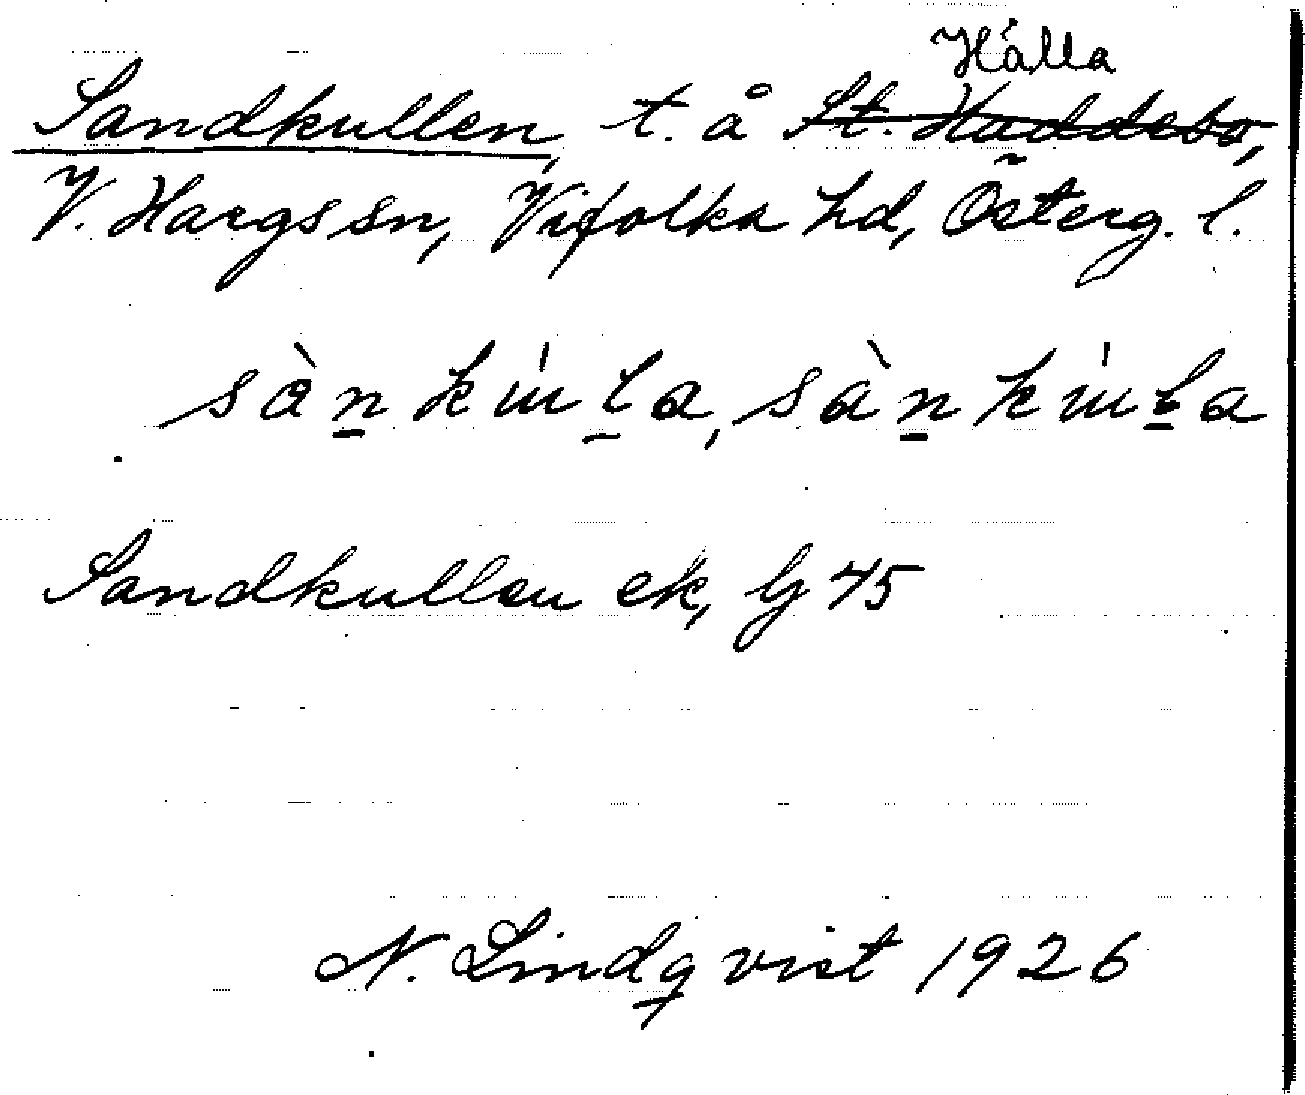 Hálla
Sandkullen, t. å St. Haddebo,
V. Hargs sn, Vifolka hd, Österg. l.
sàn̠kúl̠a, sàn̠kúl̠a
Sandkullen ek, bj 45
N. Lindqvist 1926